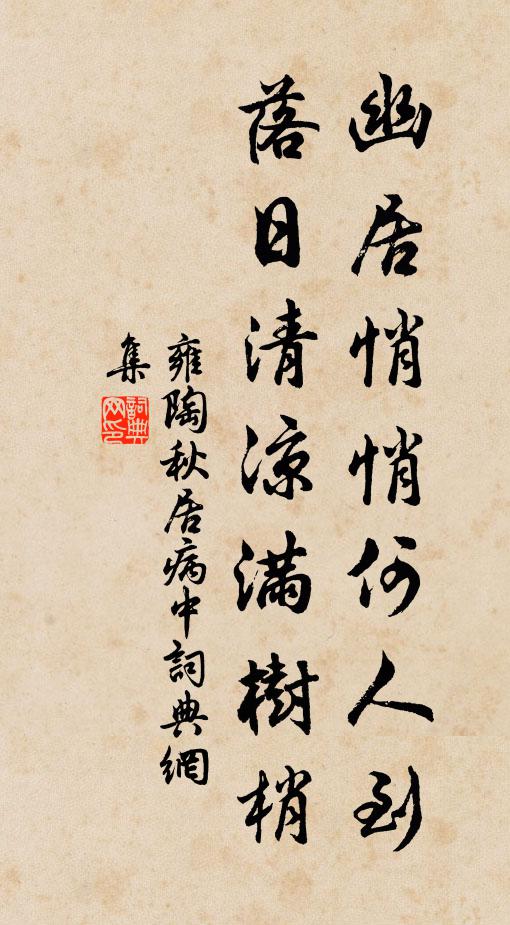 幽居悄悄何人到
落日清涼滿樹梢
雍陶秋居病中詞典網
集
詞典網印